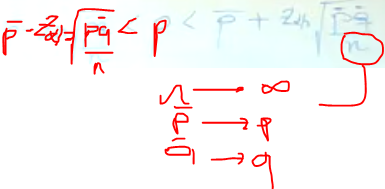 p̄ - z_{α/2} √(p̄q̄/n) < p < p̄ + z_{α/2} √(p̄q̄/n)
n → ∞
p̄ → p
q̄ → q